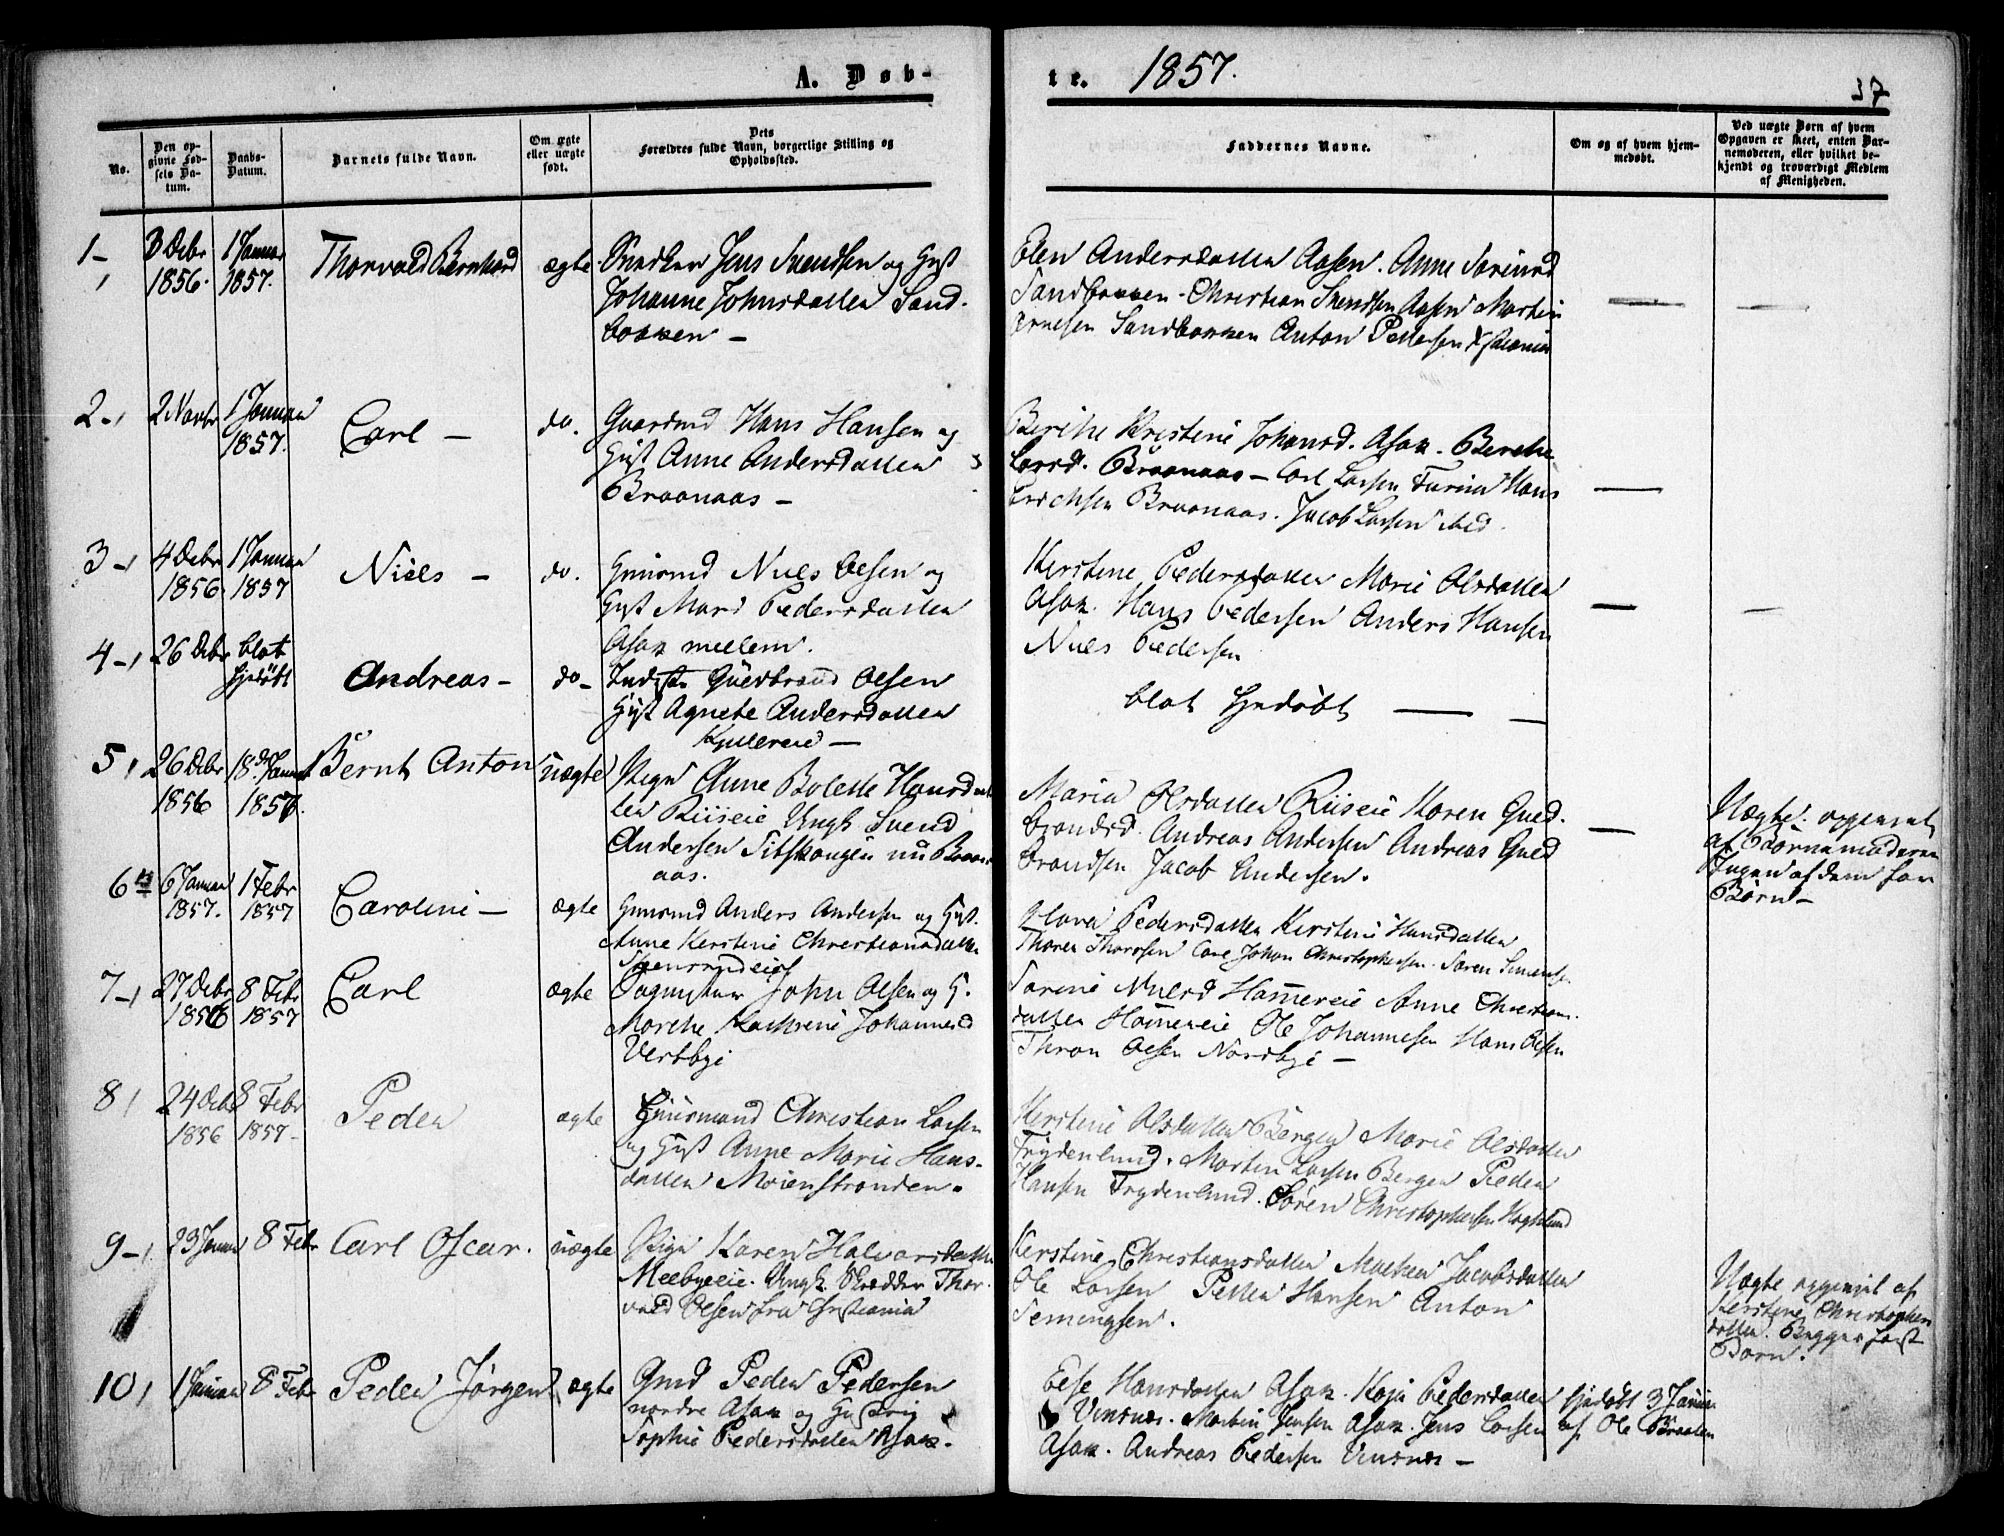 A. Døb-
te. 1857.
37
No.
Den op-
givne Fød-
sels Da-
tum.
Daabs-
Datum.
Barnets fulde Navn.
Om ægte
eller uægte
født.
Dets
Forældres fulde Navn, borgerlige Stilling og
Opholdssted.
Faddernes Navne.
Om og af hvem hjem-
medøbt.
Ved uægte Børn af hvem
Opgaven er skeet, enten Bar-
nemoderen, eller hvilket be-
kjendt og troværdigt Medlem
af Menigheden.
1- 3 Debr 1 Januar Thorvald Bernhard ægte. Jens Svendsen og Gift
1856. 1857. Johanne Johnsdatter Sand-
bakken -
Elen Andersdatter Aasen. Anne
Sandbakken - Christian Svendsen Aasen Martin
Arnesen Sandbakken Anton Pettersen
2-, 2 Novbr 1 Januar Carl - do. Gaardmd Hans Hansen og
1857. Gift Anne Andersdatter
Braanaas -
Berthe Kristine Johansd. Asak. Berthe
Larsd. Braanaas - Carl Larsen Hans
Erichsen Braanaas. Jacob Larsen ibid.
3-, 4 Debr 1 Januar Niels - do. Niels Olsen og
1856. 1857 Gift Mari Pedersdatter
Asak mellem.
Kerstine Pedersdatter Marie Olsdatter
Asak. Hans Pedersen Anders Hansen
Niels Pedersen
4-, 26 Debr blot Andreas - do- Gudbrand Olsen
hjdøbt Gift Agnete Andersdatter
blot hjdøbt
5, 26 Debr 18 Januar Bernt Anton uægte Pige Anne Bolette Hansdat
1856 1857. ter Riiseie Ungk Svend
Andersen nu Braan
aas.
Maria Olsdatter Riiseie Karen Gud-
brandsd. Andreas Andersen Andreas Gud
brandsen Jacob Andersen.
Uægte opgivet
af Barnemoderen
af dem før
Børn -
6 6 Januar 1 Febr Caroline - ægte Anders Andersen og Gift.
1857. 1857 Anne Kerstine Christiansdatter
Pedersdatter Kerstine Hansdatter
Thorer Thorsen Carl Johan Christophersen. Søren Simensen
7-, 27 Debr 8 Febr Carl ægte John Olsen og G.
1856 1857 Marthe Kathrine Johannesd
Vestbye
Sørine Nielsd Hammereie Anne Christians
datter Hammereie Ole Johannesen Hans Olsen
Thron Olsen Nordbye -
8, 24 Debr 8 Febr Peder ægte Christian Larsen
1856 1857- og Gift Anne Marie Hans-
datter Moienstranden.
Kerstine Olsdatter Bergen Marie Olsdatter
Frydenlund. Martin Larsen Bergen Peder
Hansen Frydenlund. Søren Christophersen
9-, 23 Januar 8 Febr Carl Oscar. uægte Pige Karen Halvorsdatter
Melbyeeie. Ungk Skrædder Thor-
vald Olsen fra Christiania
Kerstine Christiansdatter Maren Jacobsdatter
Ole Larsen Petter Hansen Anton
Temingsen.
Uægte opgivet af
Kerstine Christophers
datter. Begges først
Barn.
10, 1 Januar 8 Febr Peder Jørgen ægte Gmd Peder Pedersen
nordre Asak og Gift
Sophie Pedersdatter Asak.
Else Hansdatter Asak. Kaja Pedersdatter
Vinsnæs. Martin Jensen Asak. Jens Larsen
Asak. Andreas Pedersen Vinsnæs -
hjdøbt 3 Januar
af Ole Braaten